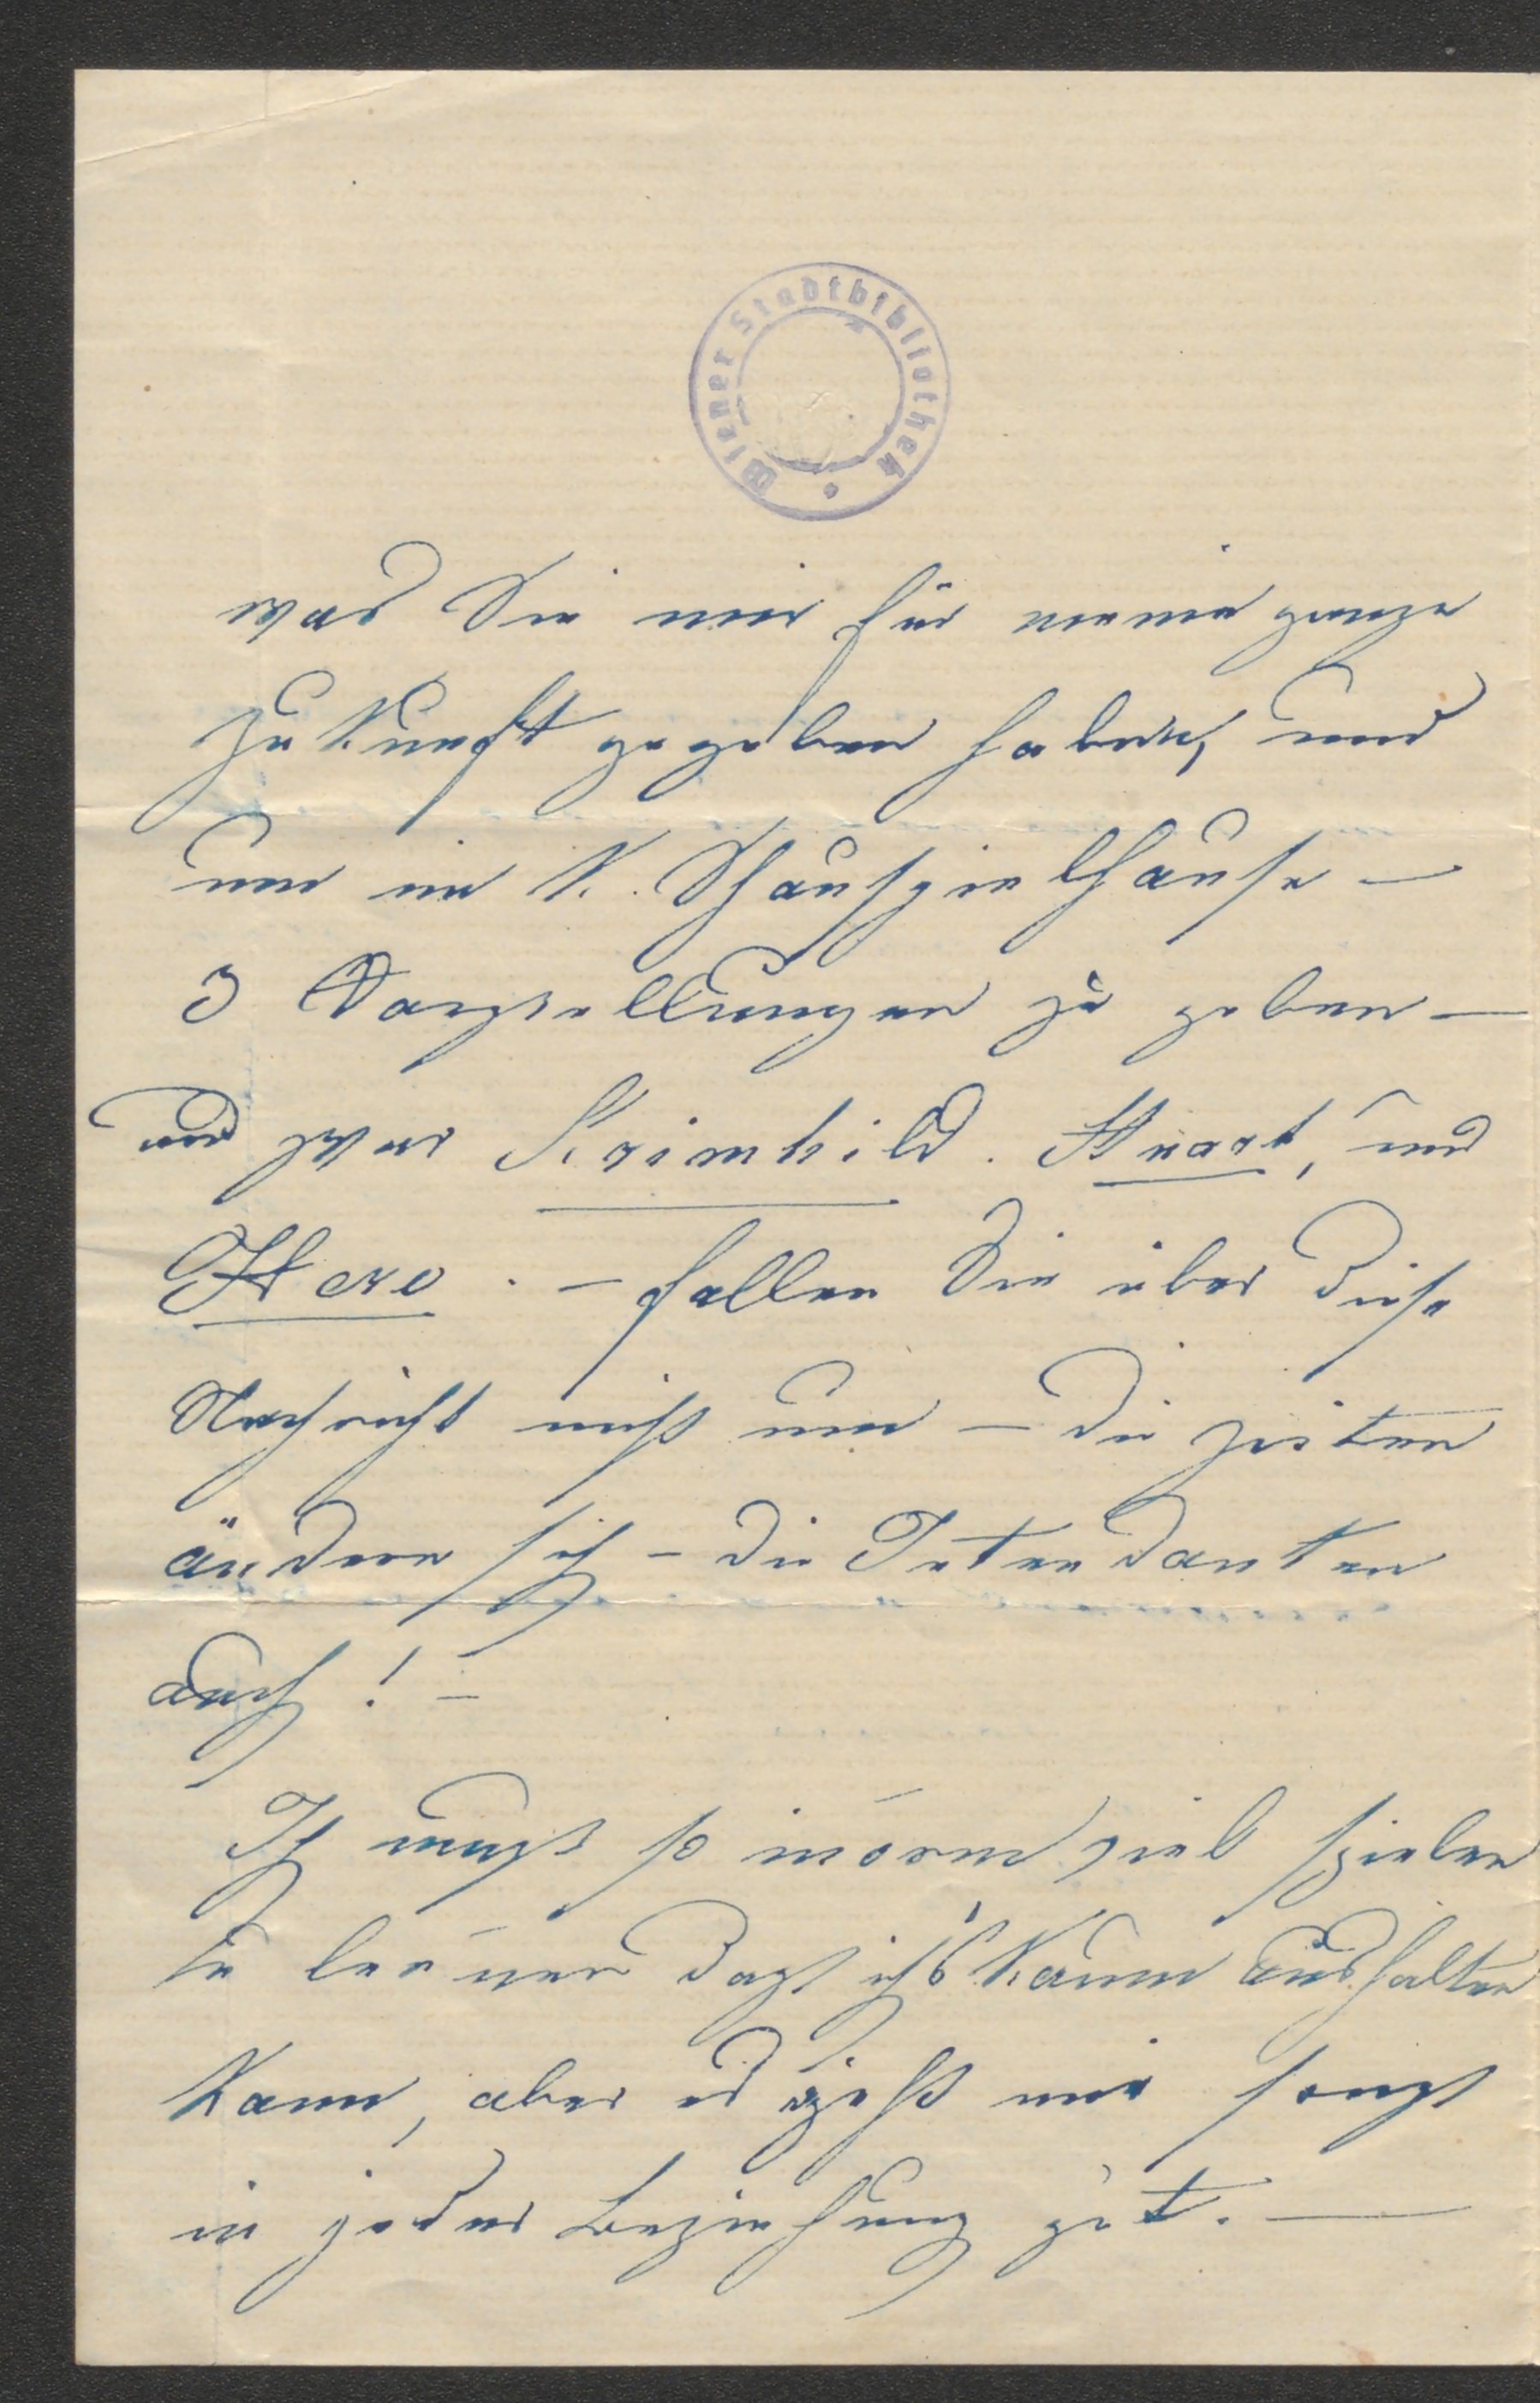 Wiener Stadtbibliothek
was Sie mir für meine ganze
Zukunft gegeben haben, und
um im K. Schauspielhause —
3 Darstellungen zu geben —
und zwar Kriemhild. Stuart, und
Hero. — fallen Sie über diese
Nachricht nicht um — die Zeiten
ändern sich — die Intendanten
auch! —
Ich muß so enorm viel spielen
lernen daß ich's kaum aushalten
kann, aber es geht mir sonst
in jeder Beziehung gut. —